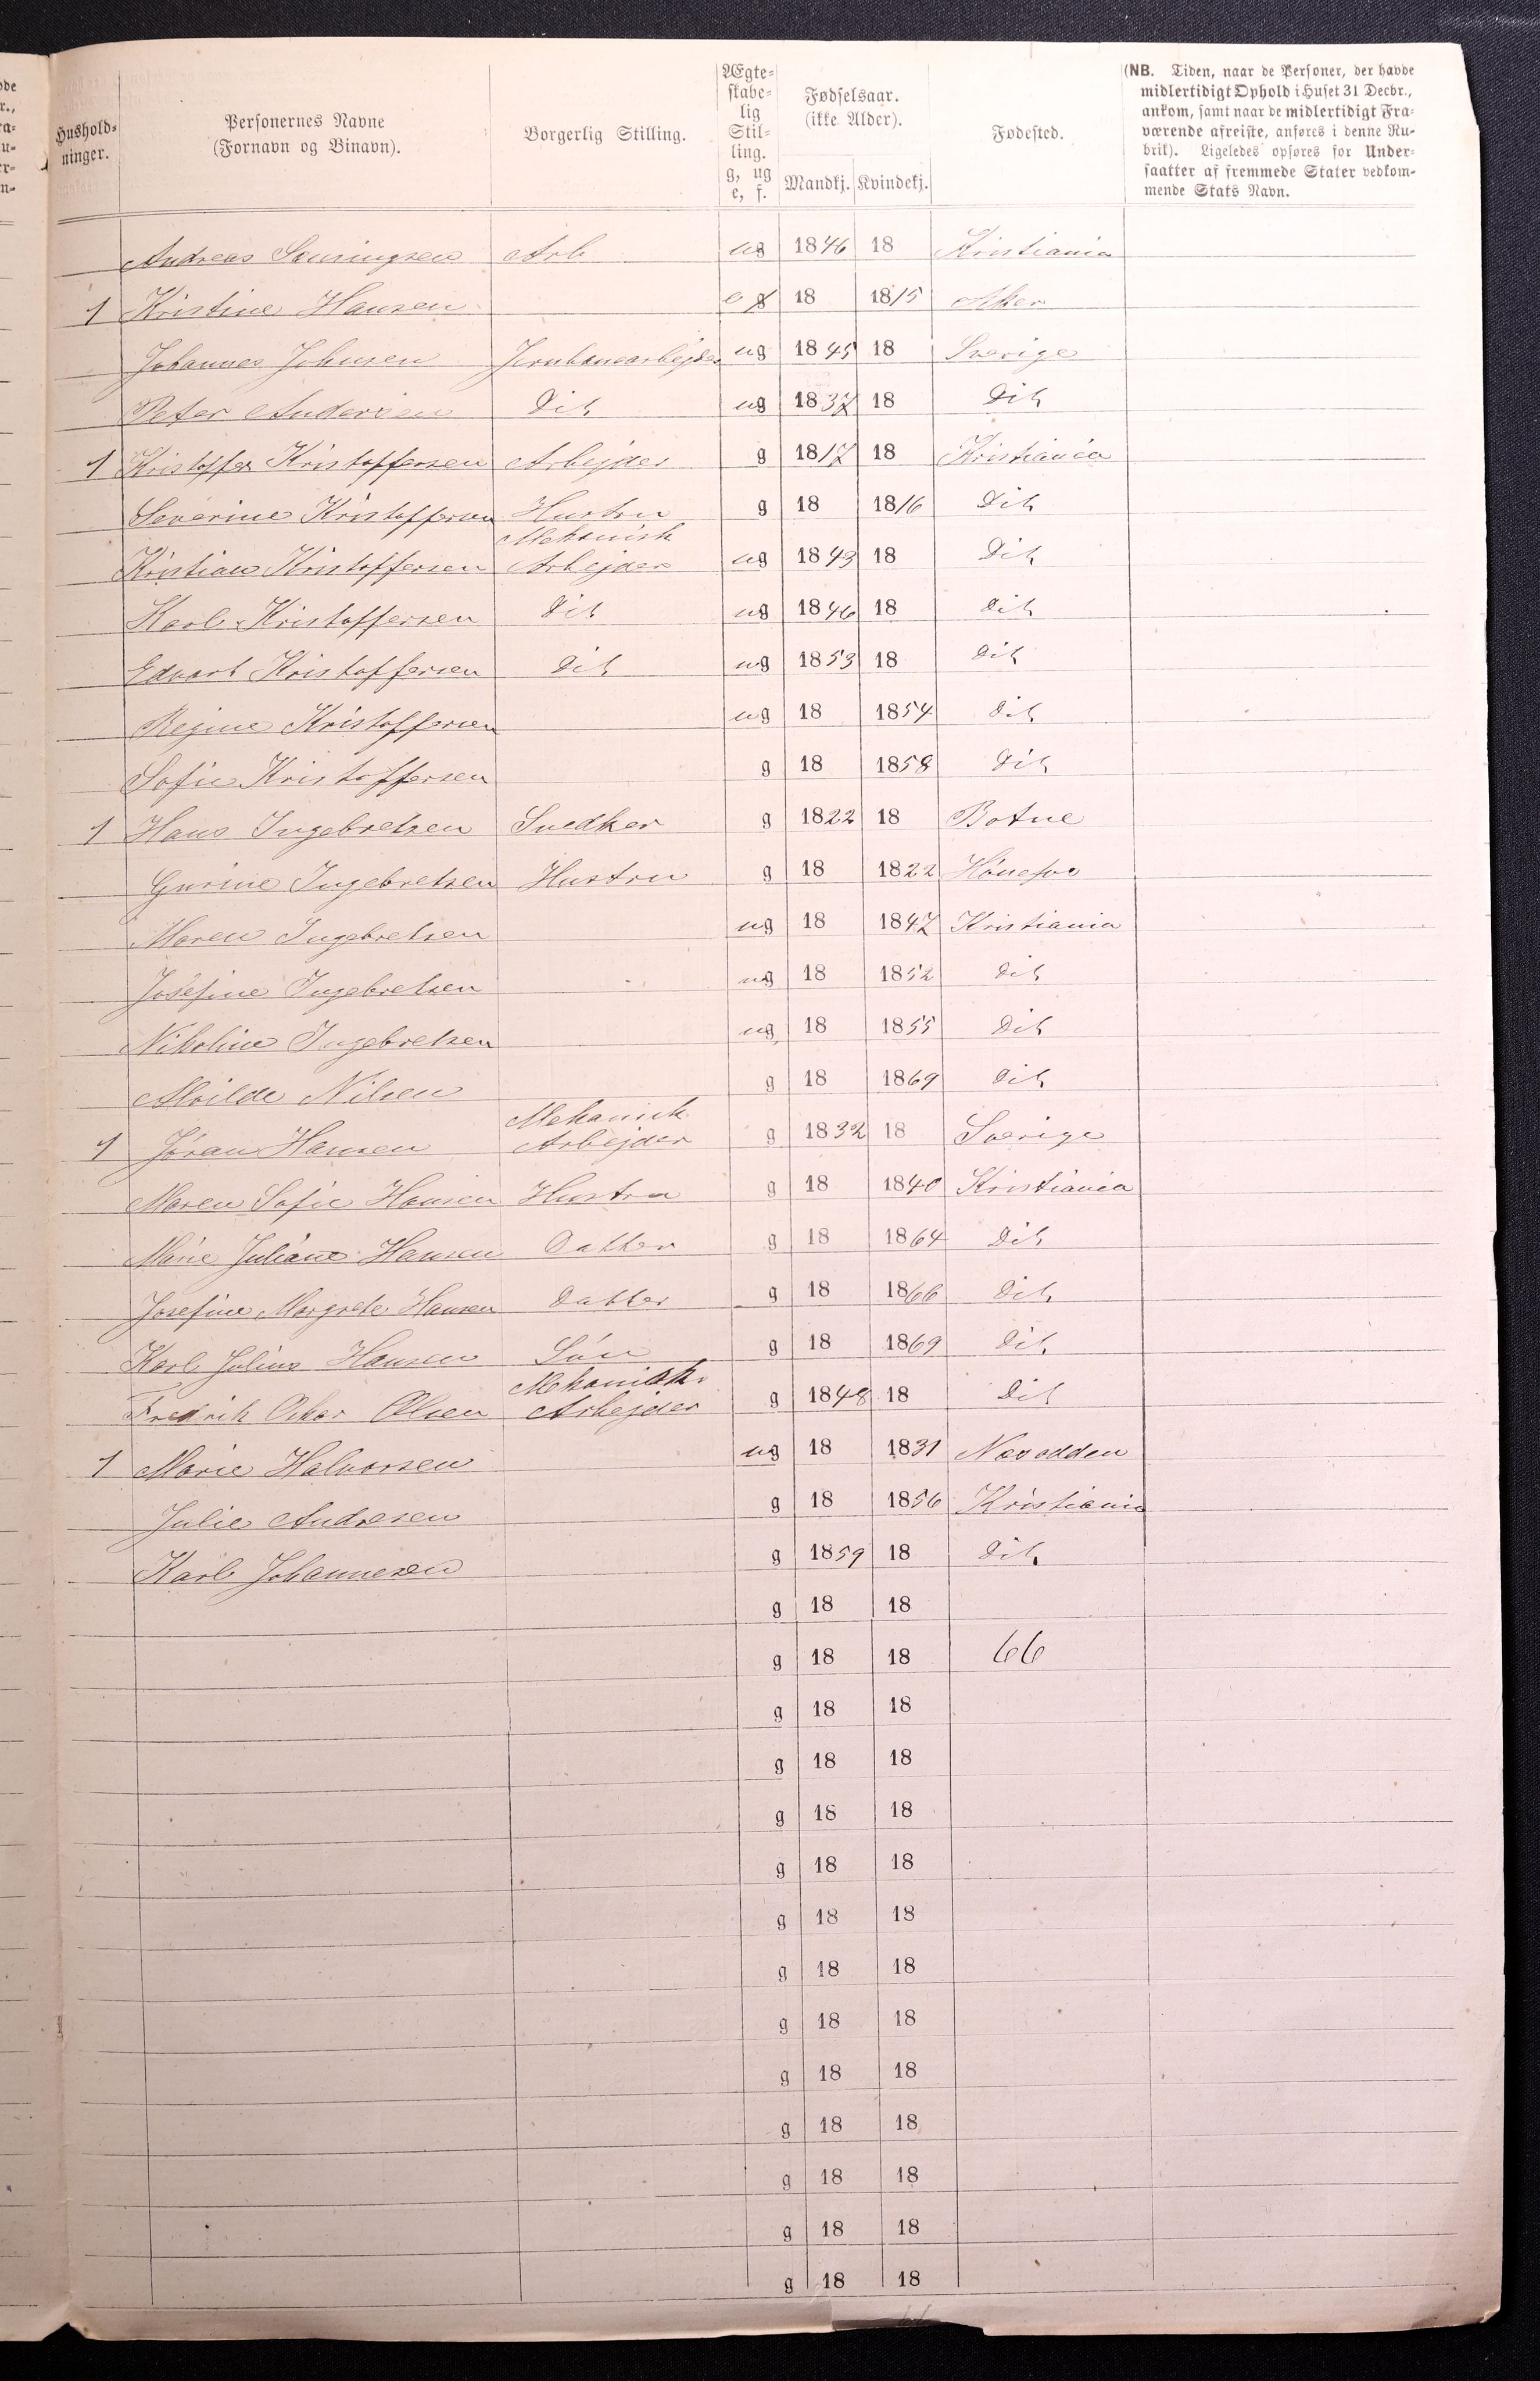 Hushold-
ninger.
Personernes Navne
(Fornavn og Binavn).
Borgerlig Stilling.
Ægte-
skabe-
lig
Stil-
ling.
g, ug
e, f.
Fødselsaar.
(ikke Alder).
Mandkj. Kvindekj.
Fødested.
(NB. Tiden, naar de Personer, der havde
midlertidigt Ophold i Huset 31 Decbr.,
ankom, samt naar de midlertidigt Fra-
værende afreiste, anføres i denne Ru-
brik). Ligeledes opføres for Under-
saatter af fremmede Stater vedkom-
mende Stats Navn.
Andreas Arb ug 1846 18 Kristiania
1 Kristine Hansen e g 18 1815 Aker
Johannes Johnsen Jernbanearbejder ug 1845 18 Sverige
Peter Andersen Dit ug 1837 18 Dit
1 Kristoffer Kristoffersen Arbejder g 1817 18 Kristiania
Severine Kristoffersen Hustru g 18 1816 Dit
Kristian Kristoffersen Mekanisk Arbejder ug 1843 18 Dit
Karl Kristoffersen Dit ug 1846 18 Dit
Edvart Kristoffersen Dit ug 1853 18 Dit
Regine Kristoffersen ug 18 1854 Dit
Sofie Kristoffersen g 18 1858 Dit
1 Hans Ingebretsen Snedker g 1822 18 Botne
Gurine Ingebretsen Hustru g 18 1822 Hønefos
Maren Ingebretsen ug 18 1847 Kristiania
Josefine Ingebretsen ug 18 1852 Dit
Nikoline Ingebretsen ug 18 1855 Dit
Alvilde Nilsen g 18 1869 Dit
1 Jøran Hansen Mekanisk Arbejder g 1832 18 Sverige
Maren Sofie Hansen Hustru g 18 1840 Kristiania
Marie Juliane Hansen Datter g 18 1864 Dit
Josefine Margrete Hansen Datter g 18 1866 Dit
Karl Julius Hansen Søn g 18 1869 Dit
Fredrik Oskar Olsen Mekanisk Arbejder g 1848 18 Dit
1 Marie Halvorsen ug 18 1831 Næsodden
Julie Andresen g 18 1856 Kristiania
Karl Johannesen g 1859 18 Dit
g 18 18
g 18 18 66
g 18 18
g 18 18
g 18 18
g 18 18
g 18 18
g 18 18
g 18 18
g 18 18
g 18 18
g 18 18
g 18 18
g 18 18